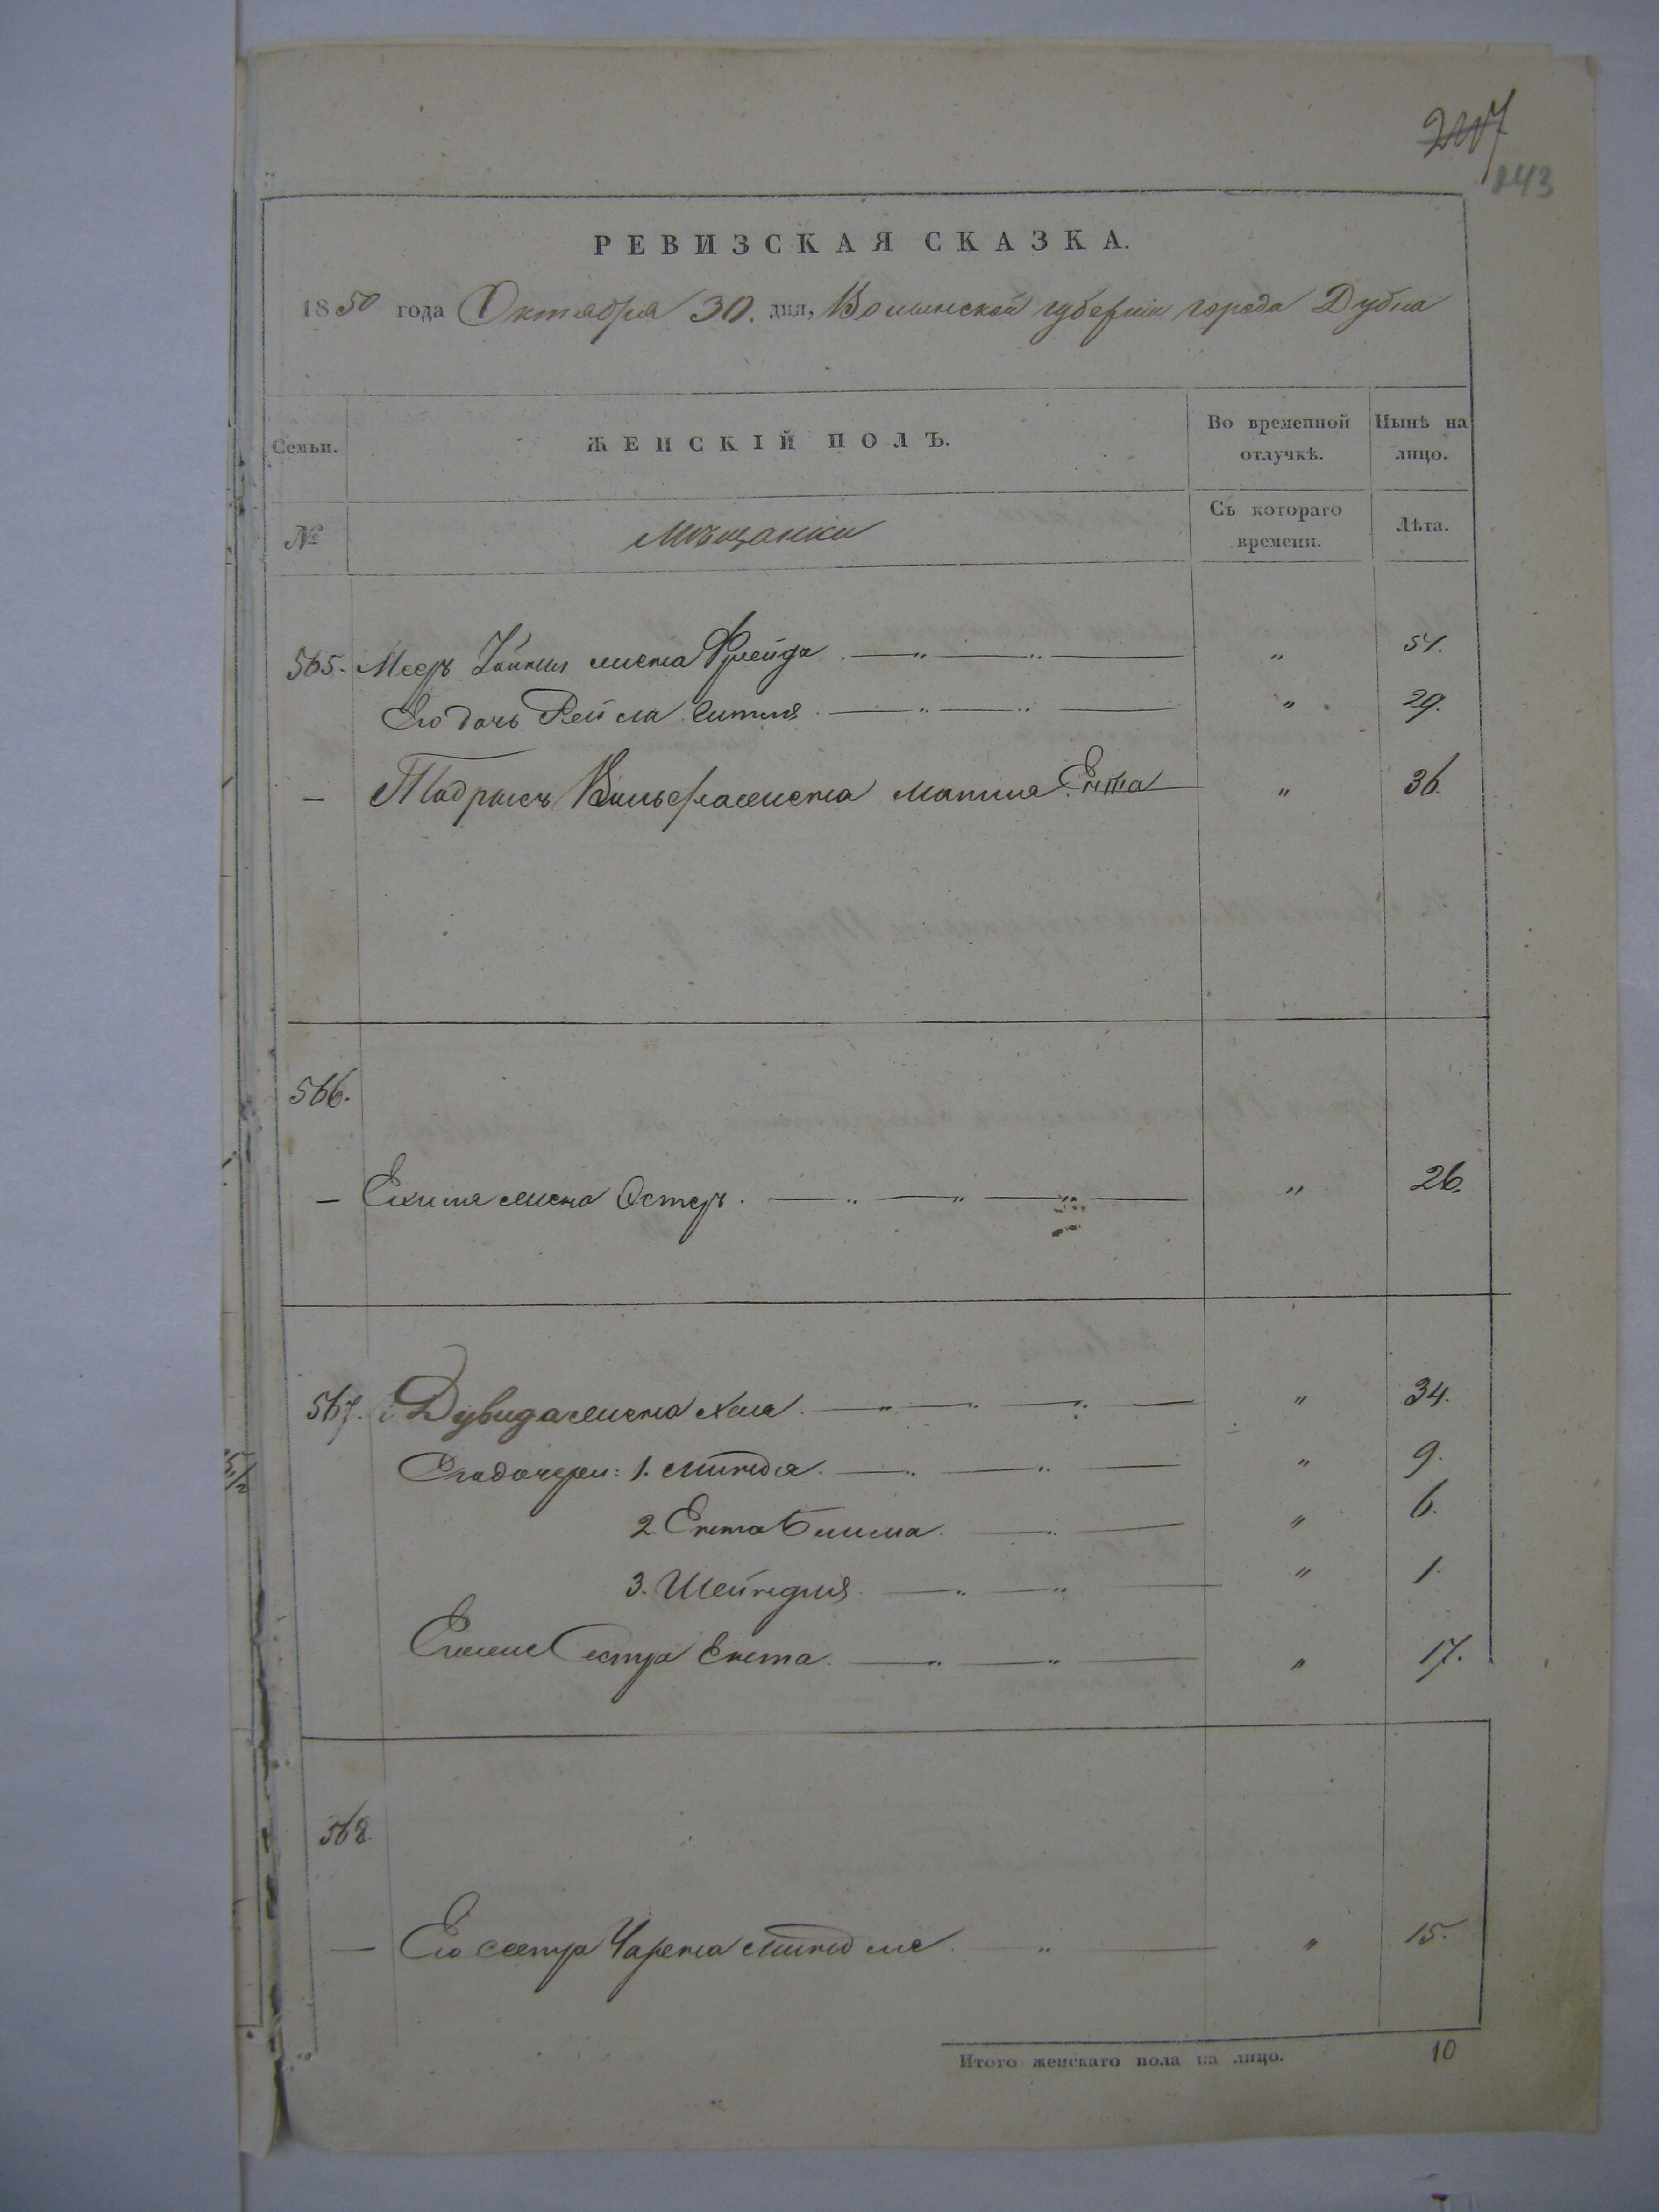 207
243
РЕВИЗСКАЯ СКАЗКА.
1850 года Октября 30. дня, Волынской губернии города Дубна
Семьи.
ЖЕНСКІЙ ПОЛЪ.
Во временной отлучкѣ.
Нынѣ на лицо.
№
Мѣщанки
Съ котораго времени.
Лѣта.
565. Меера жена Фрейда — " — " — " 51.
Его дочь Рейзла — " — " — " 29.
— жена Ента — " 36.
566.
— жена Эстеръ. — " — " — " — " 26.
567. Дувида жена Хая. — " — " — " — " 34.
Его дочери: 1. Миндля. — " — " — " 9.
2. Ента Блима. — " — " 6.
3. Шейндля. — " — " — " 1.
Его же Сестра Ента. — " — " — " 17.
568.
— Его сестра Чарна Миндля. " — " 15.
Итого женскаго пола на лицо. 10